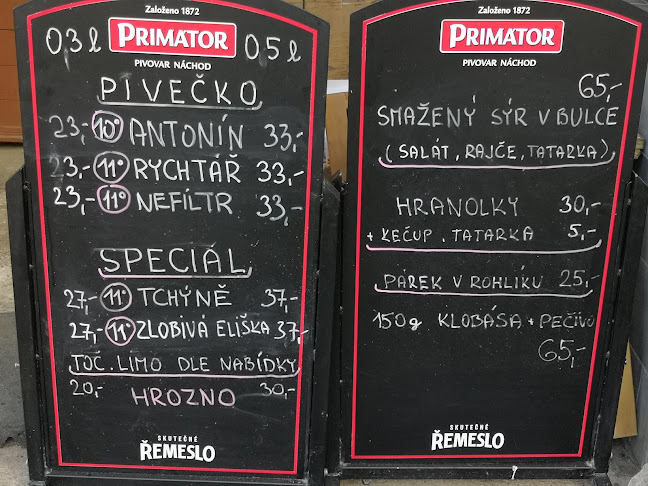 Založeno 1872
0,3 l PRIMATOR 0,5 l
PIVOVAR NÁCHOD
PIVEČKO
23,- 10° ANTONÍN 33,-
23,- 11° RYCHTÁŘ 33,-
23,- 11° NEFÍLTR 33,-
SPECIÁL
27,- 11° TCHÝNĚ 37,-
27,- 11° ZLOBIVÁ ELIŠKA 37,-
TOČ. LIMO DLE NABÍDKY
20,- HROZNO 30,-
SKUTEČNÉ
ŘEMESLO
Založeno 1872
PRIMATOR
PIVOVAR NÁCHOD
65,-
SMAŽENÝ SÝR V BULCE
(SALÁT, RAJČE, TATARKA)
HRANOLKY 30,-
+ KEČUP, TATARKA 5,-
PÁREK V ROHLÍKU 25,-
150g KLOBÁSA + PEČIVO
65,-
SKUTEČNÉ
ŘEMESLO